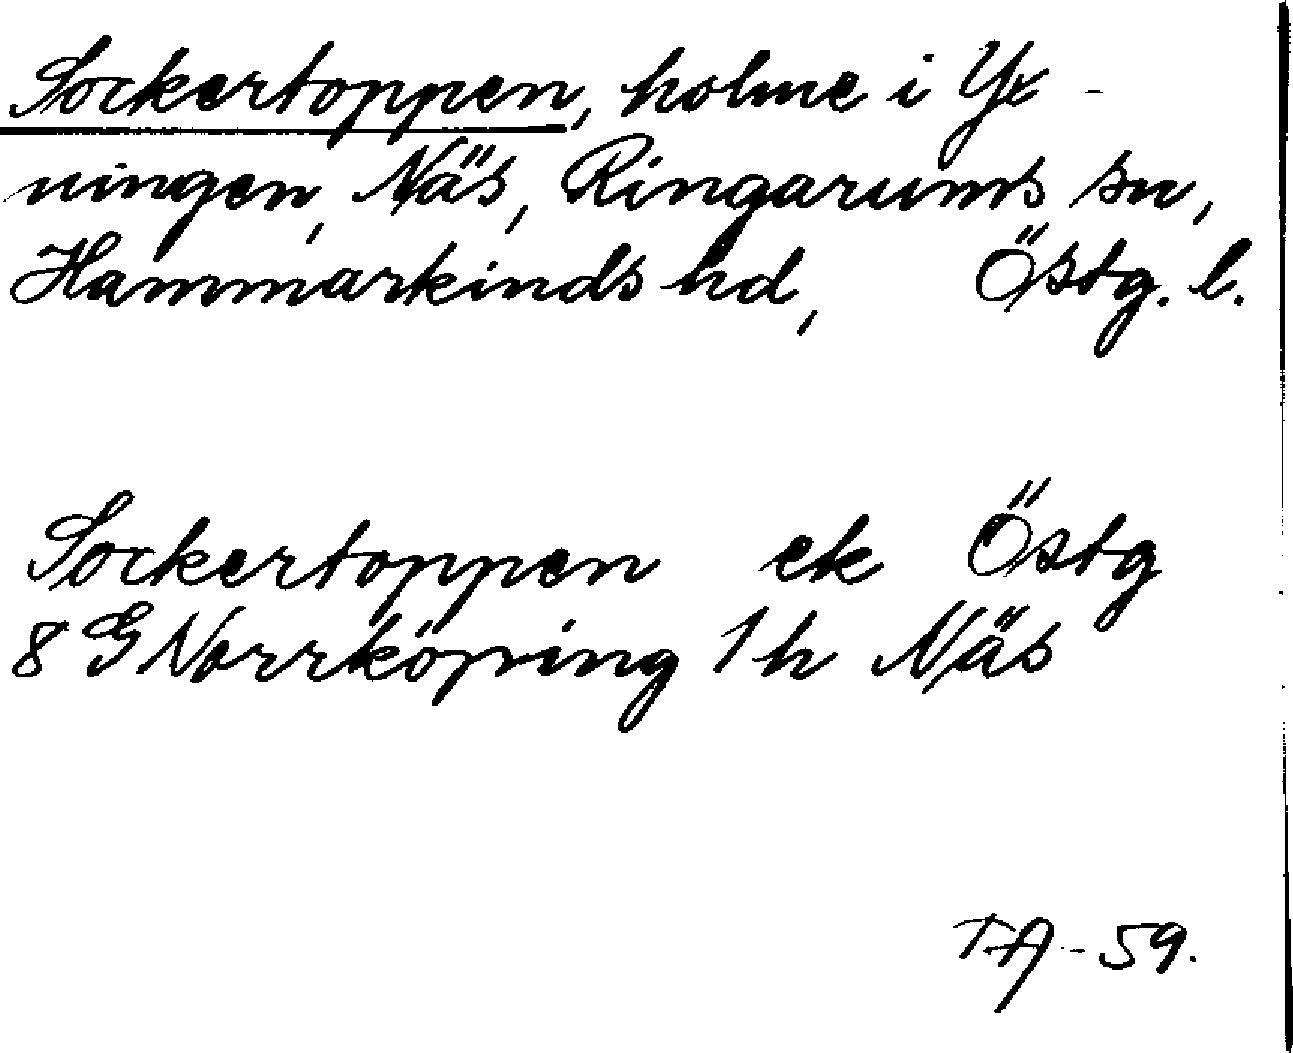 Sockertoppen, holme i Yx-
ningen, Näs, Ringarums sn,
Hammarkinds hd, Östg. l.
Sockertoppen ek Östg
8 G Norrköping 1 h Näs
T.A-59.